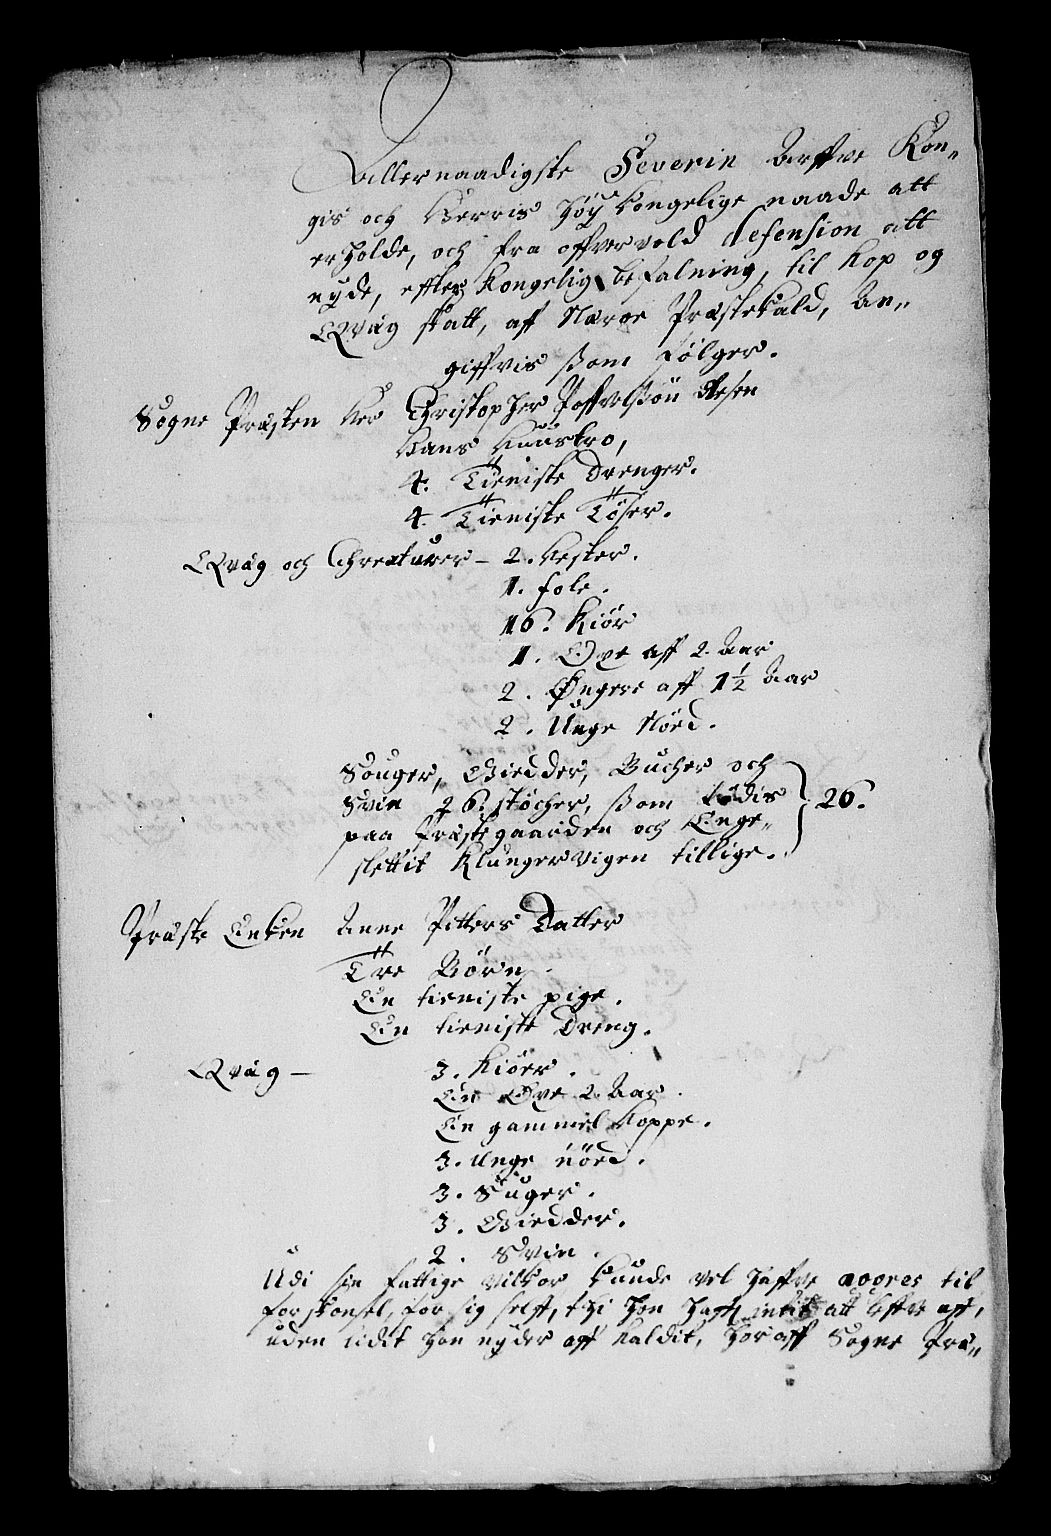 Allernaadigste Severin Arffve Kon„
gis och Herris Höÿ Kongelige naade att
erholde, och fra offvervold defension att
nÿde, effter Kongelig befalning, til Kop og
Qvæg skatt, aff Nærøe Præstekald, An„
giffvis ßom følger.
Sogne Præsten Her Christopher Poffvelsøn
Hans Huustro,
4. Tieniste Drenger.
4. Tieniste Töser.
Qvæg och Chreaturer – 2. Hester.
1. fole.
16. Kiör
1. Oxe aff 2. Aar
2. Øngere aff 1½ Aar
2. Unge Nöed.
Souger, Giedder, Bucher och
Svin 26. støcher, ßom födis } 26.
paa Præstegaarden och Enge„
slettit Klungervigen tillige.
Præste Enken Anne Pitters Datter
Tre Börn.
En tieniste pige.
En tieniste Dreng.
Qvæg – 3. Kiöer.
En Oxe 2. Aar.
En gammel Hoppe.
3. Unge nöed.
3. Suger.
3. Giedder.
2. Svin.
Udi sin fattige vilkor kunde vel haffve aoores til
forskonsel, for sig selff, thi hon haffr intit att leffve aff,
uden lidit hon nÿder aff kaldit, Hor aff Sogne Præ„